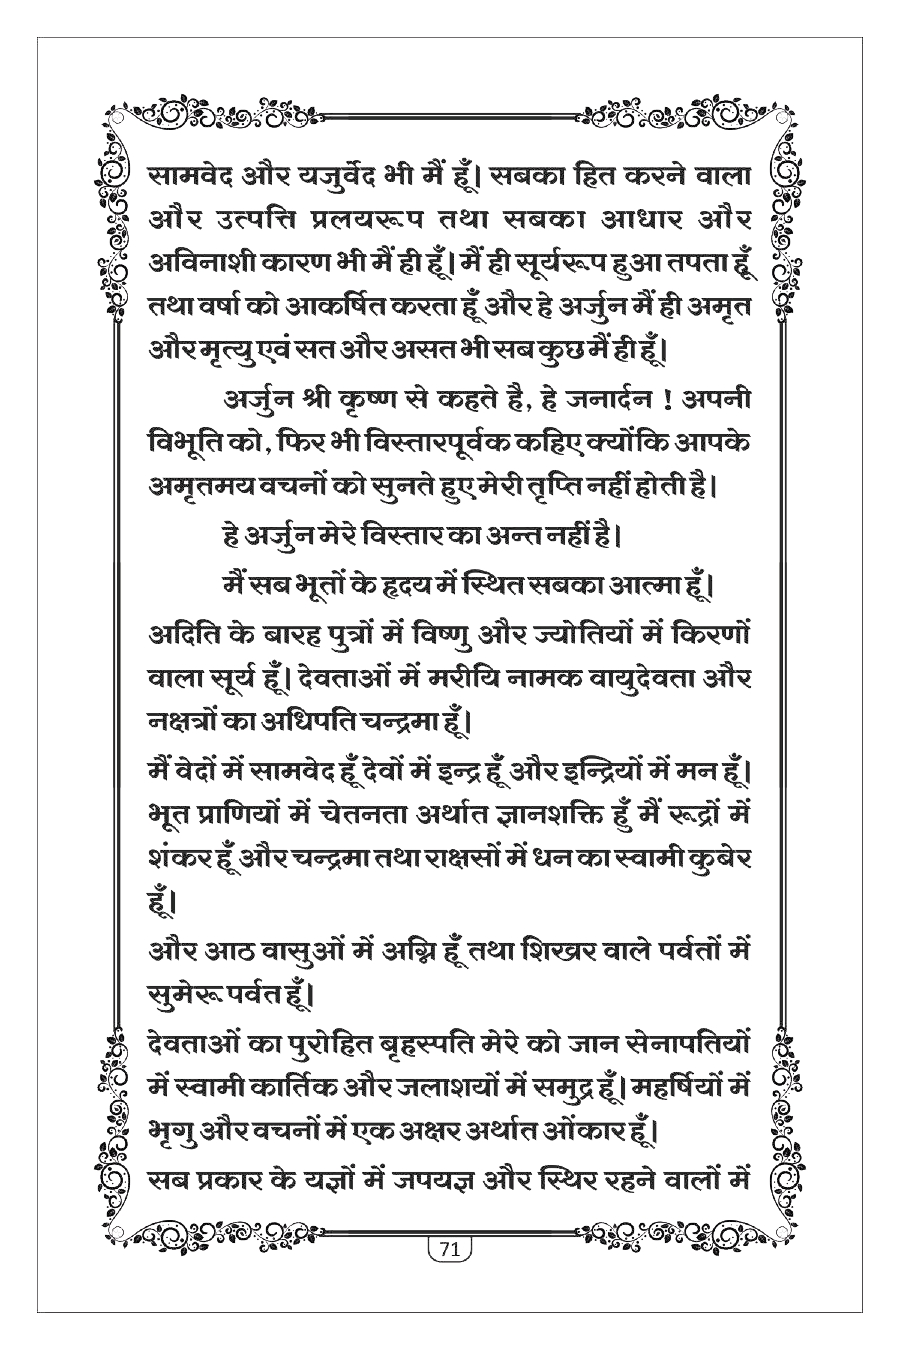 सामवेद और यजुर्वेद भी मैं हूँ। सबका हित करने वाला
और उत्पत्ति प्रलयरूप तथा सबका आधार और
अविनाशी कारण भी मैं ही हूँ। मैं ही सूर्यरूप हुआ तपता हूॅं
तथा वर्षा को आकर्षित करता हूँ और हे अर्जुन मैं ही अमृत
और मृत्यु एवं सत और असत भी सब कुछ मैं ही हूँ।
अर्जुन श्री कृष्ण से कहते है, हे जनार्दन ! अपनी
विभूति को, फिर भी विस्तारपूर्वक कहिए क्योंकि आपके
अमृतमय वचनों को सुनते हुए मेरी तृप्ति नहीं होती है।
हे अर्जुन मेरे विस्तार का अन्त नहीं है।
मैं सब भूतों के हृदय में स्थित सबका आत्मा हूँ।
अदिति के बारह पुत्रों में विष्णु और ज्योतियों में किरणों
वाला सूर्य हूँ। देवताओं में मरीयि नामक वायुदेवता और
नक्षत्रों का अधिपति चन्द्रमा हूँ।
मैं वेदों में सामवेद हूँ देवों में इन्द्र हूँ और इन्द्रियों में मन हूँ।
भूत प्राणियों में चेतनता अर्थात ज्ञानशक्ति हुँ मैं रूद्रों में
शंकर हूँ और चन्द्रमा तथा राक्षसों में धन का स्वामी कुबेर
हूँ।
और आठ वासुओं में अग्नि हूँ तथा शिखर वाले पर्वतों में
सुमेरू पर्वत हूँ।
देवताओं का पुरोहित बृहस्पति मेरे को जान सेनापतियों
में स्वामी कार्तिक और जलाशयों में समुद्र हूँ। महर्षियों में
भृगु और वचनों में एक अक्षर अर्थात ओंकार हूँ।
सब प्रकार के यज्ञों में जपयज्ञ और स्थिर रहने वालों में
71